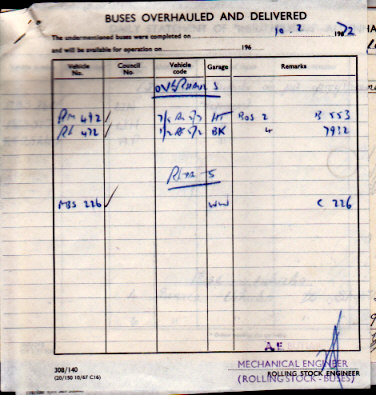 BUSES OVERHAULED AND DELIVERED
The undermentioned buses were completed on 10.2 1972
and will be available for operation on 196
Vehicle No. Council No. Vehicle code Garage Remarks
OVERHAULS
RM 492 / HT BOS 2 B 553
RL 472 / BK 4 7932
MBS 226 / WW C 226
308/140
(20/150 10/67 C16)
MECHANICAL ENGINEER
ROLLING STOCK ENGINEER
(ROLLING STOCK - BUSES)